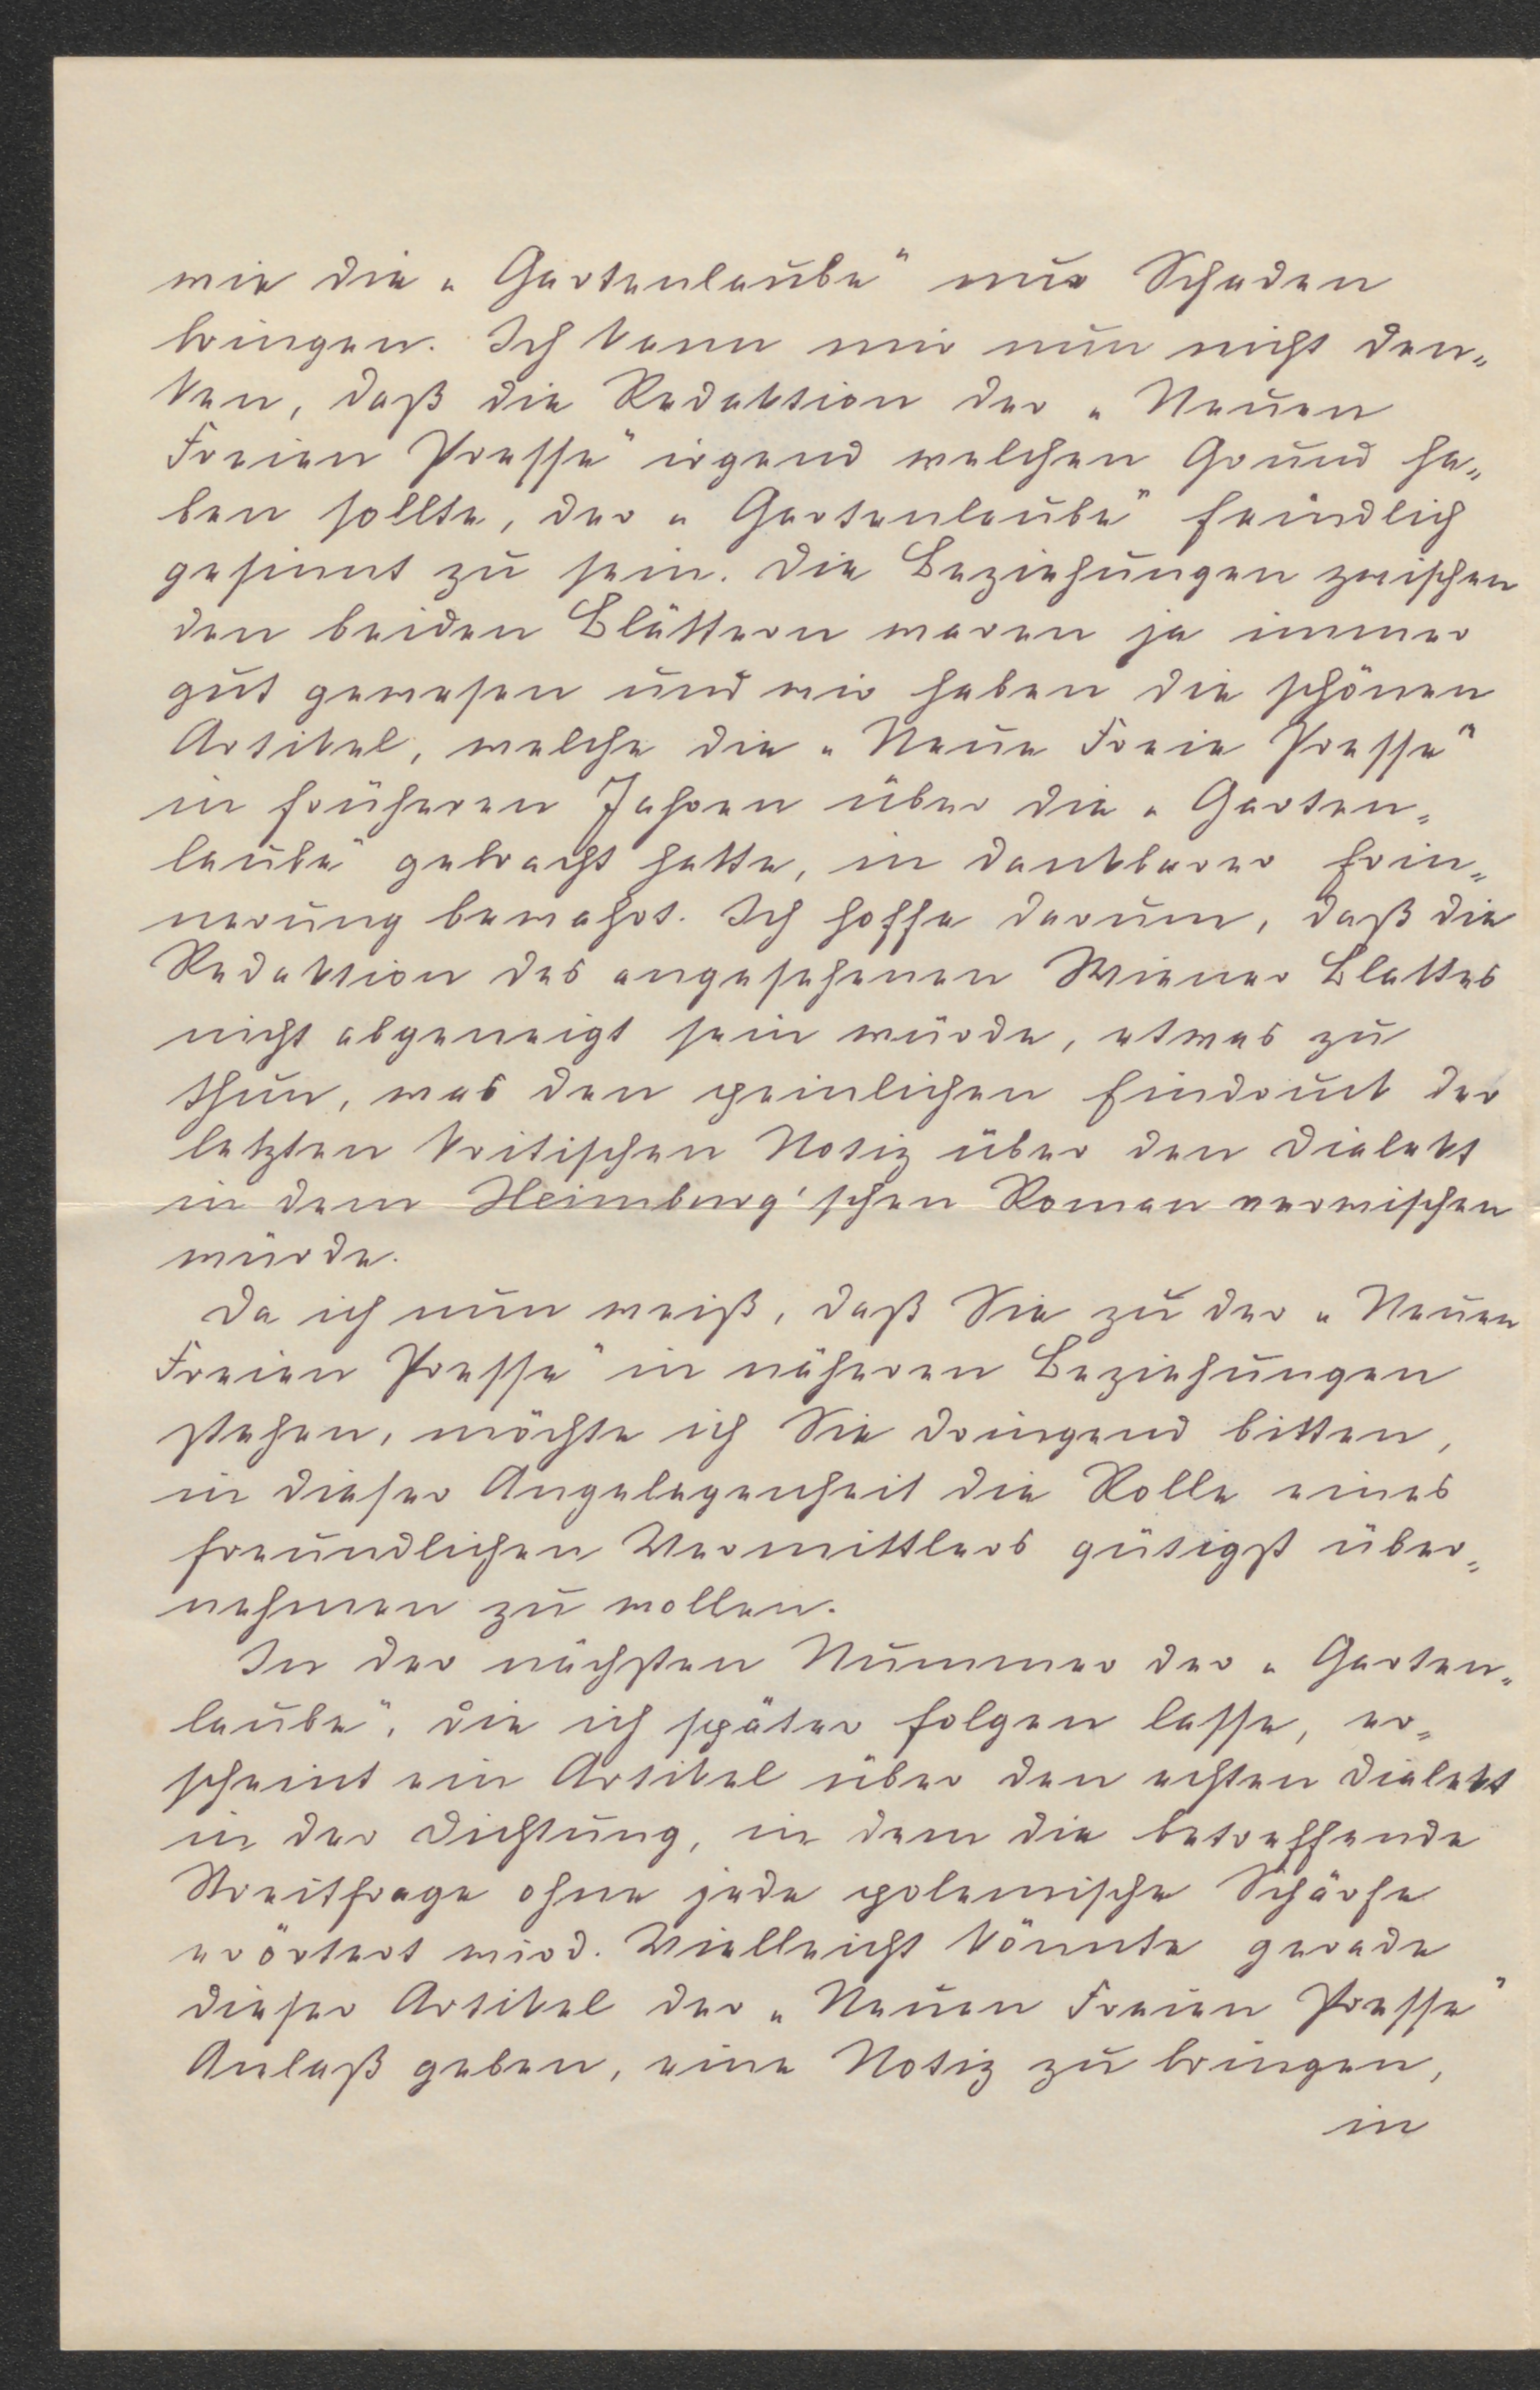 wie die „Gartenlaube" nur Schaden
bringen. Ich kann mir nun nicht den„
ken, daß die Redaktion der „Neuen
Freien Presse" irgend welchen Grund ha„
ben sollte, der „Gartenlaube" feindlich
gesinnt zu sein. Die Beziehungen zwischen
den beiden Blättern waren ja immer
gut gewesen und wir haben die schönen
Artikel, welche die „Neue Freie Presse"
in früheren Jahren über die „Garten„
laube" gebracht hatte, in dankbarer Erin„
nerung bewahrt. Ich hoffe darum, daß die
Redaktion des angesehenen Wiener Blattes
nicht abgeneigt sein würde, etwas zu
thun, was den peinlichen Eindruck der
letzten kritischen Notiz über den Dialekt
in dem Heimburg'schen Roman verwischen
würde.
Da ich nun weiß, daß Sie zu der „Neuen
Freien Presse" in näheren Beziehungen
stehen, möchte ich Sie dringend bitten,
in dieser Angelegenheit die Rolle eines
freundlichen Vermittlers gütigst über„
nehmen zu wollen.
In der nächsten Nummer der „Garten„
laube", die ich später folgen lasse, er„
scheint ein Artikel über den echten Dialekt
in der Dichtung, in dem die betreffende
Streitfrage ohne jede polemische Schärfe
erörtert wird. Vielleicht könnte gerade
dieser Artikel der „Neuen Freien Presse"
Anlaß geben, eine Notiz zu bringen,
in